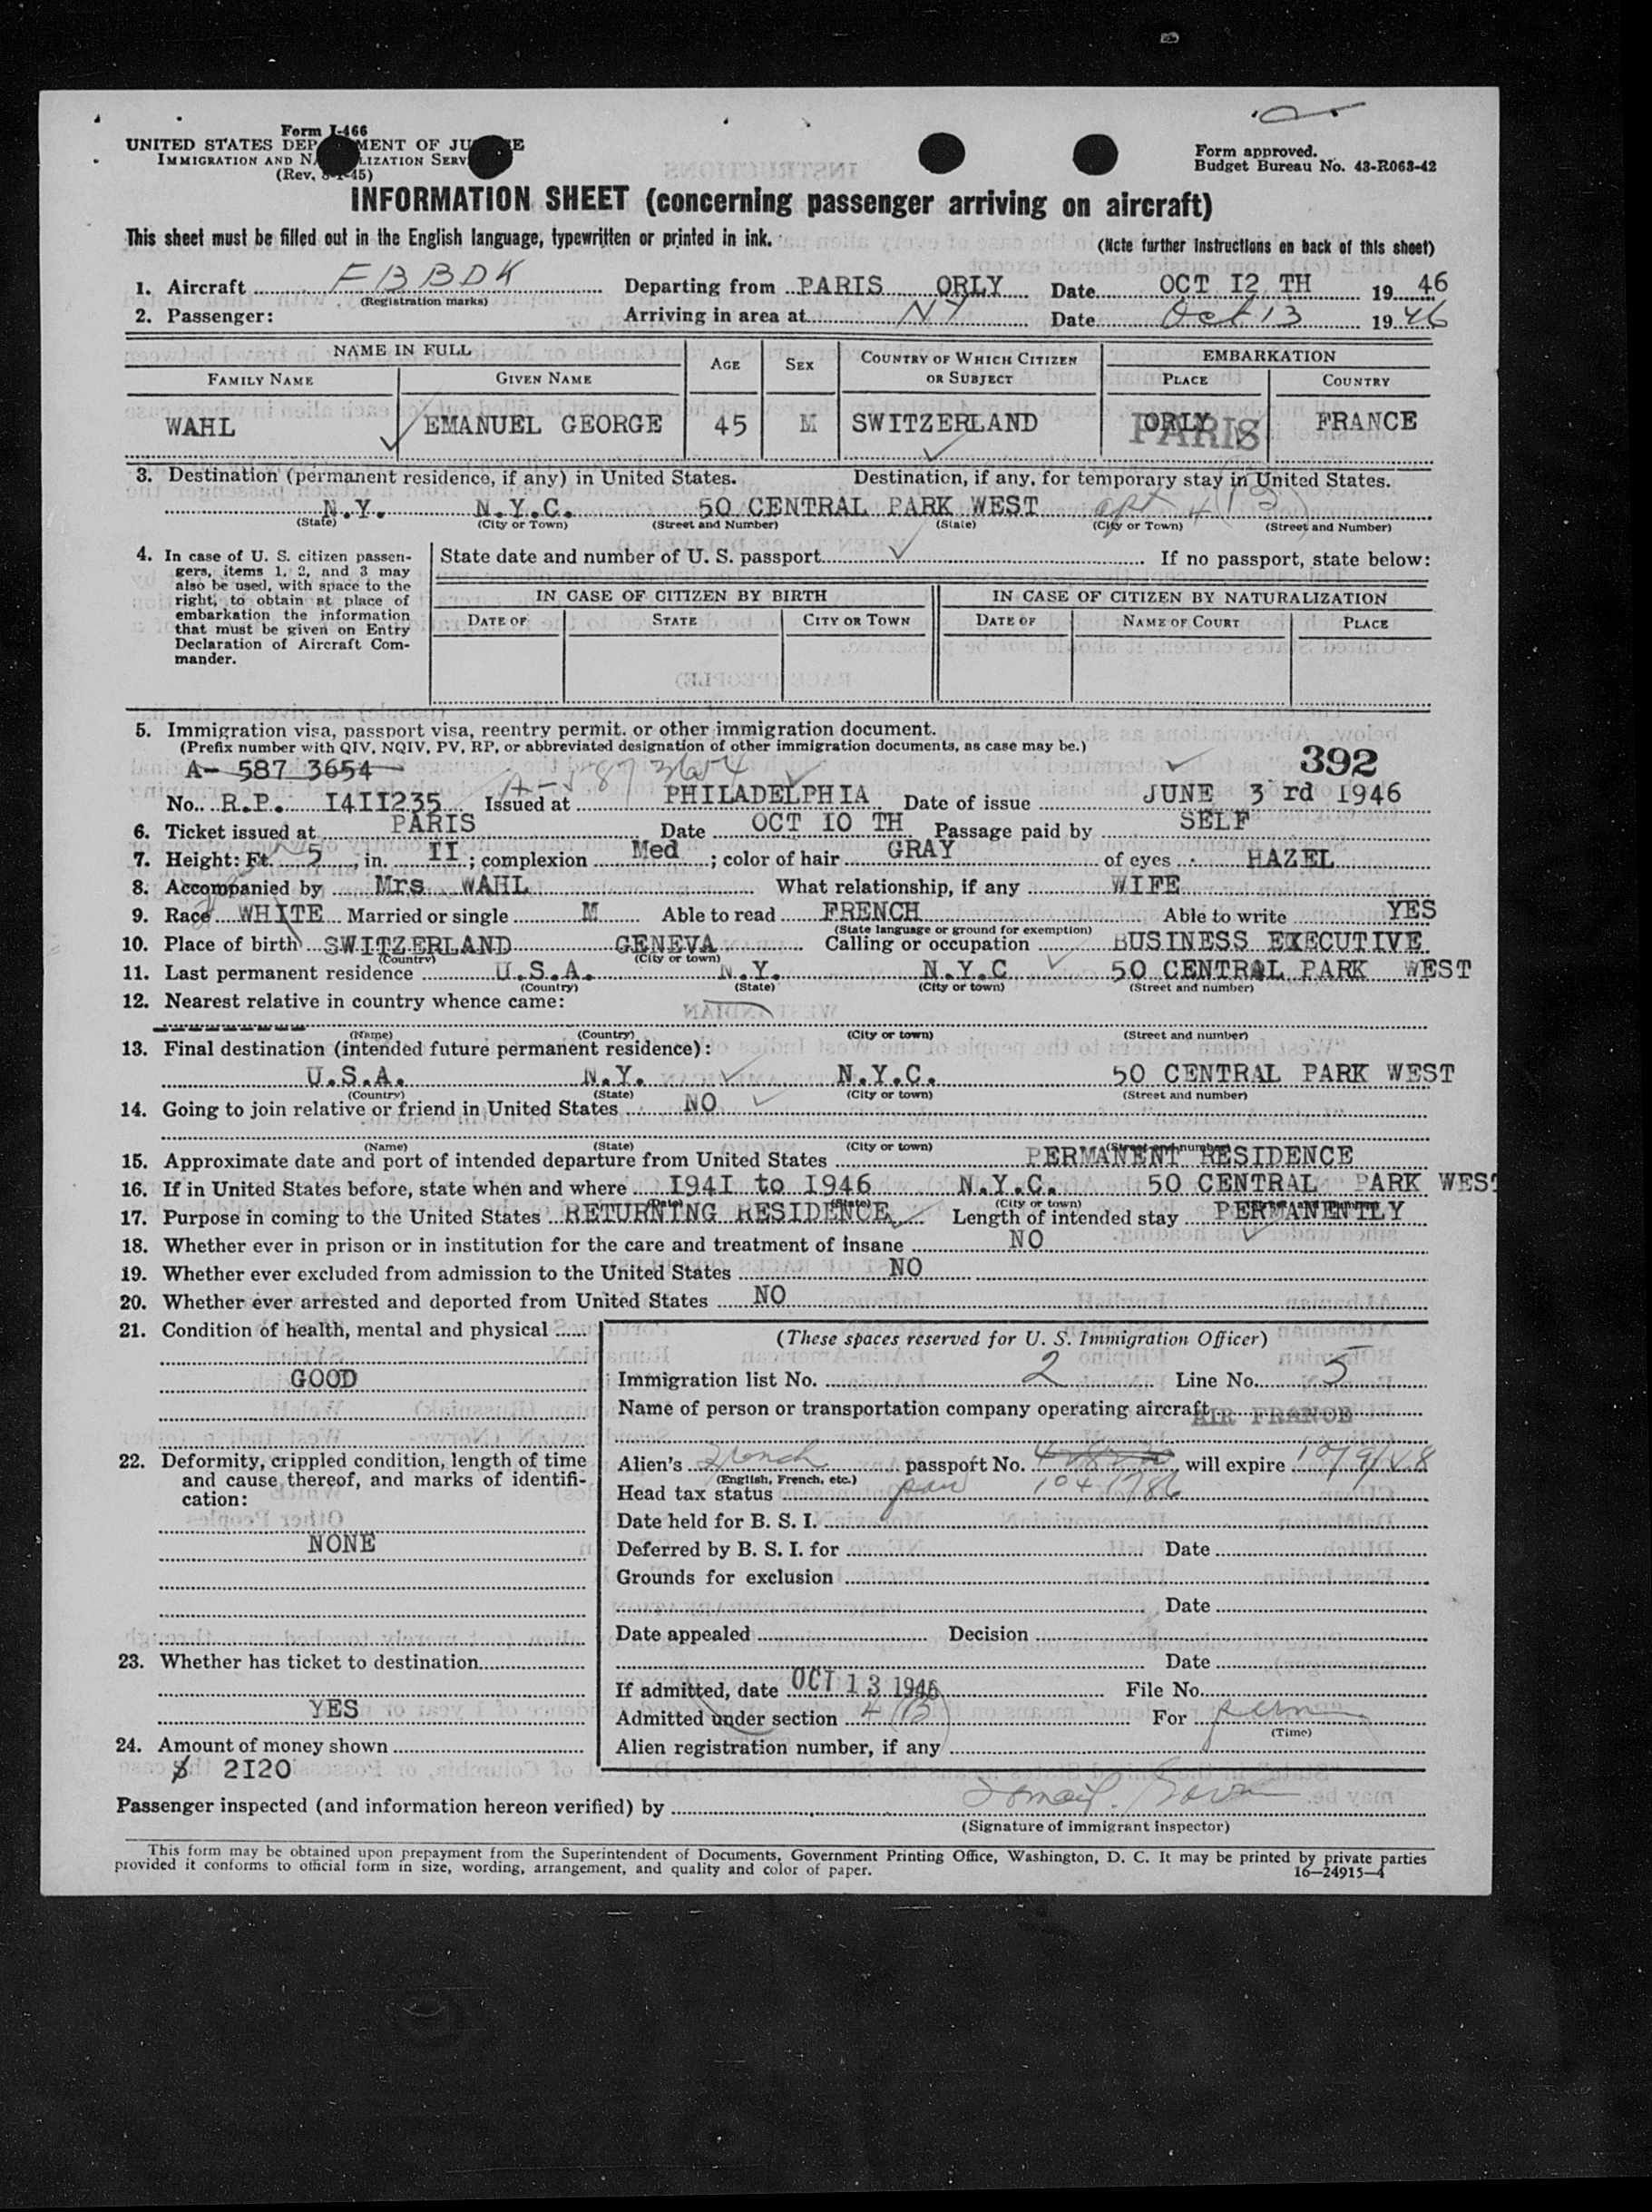 Form I-466
UNITED STATES DEPARTMENT OF JUSTICE
IMMIGRATION AND NATURALIZATION SERVICE
(Rev. 8-1-45)
Form approved.
Budget Bureau No. 43-R063-42
INFORMATION SHEET (concerning passenger arriving on aircraft)
This sheet must be filled out in the English language, typewritten or printed in ink.
(Note further instructions on back of this sheet)
1. Aircraft F B BDK Departing from PARIS ORLY Date OCT I2 TH 19 46
(Registration marks)
2. Passenger: Arriving in area at NY Date Oct 13 19 46
NAME IN FULL AGE SEX COUNTRY OF WHICH CITIZEN OR SUBJECT EMBARKATION
FAMILY NAME GIVEN NAME PLACE COUNTRY
WAHL EMANUEL GEORGE 45 M SWITZERLAND ORLY PARIS FRANCE
3. Destination (permanent residence, if any) in United States. Destination, if any, for temporary stay in United States.
N.Y. N.Y.C. 50 CENTRAL PARK WEST apt 4 (13)
(State) (City or Town) (Street and Number) (State) (City or Town) (Street and Number)
4. In case of U. S. citizen passengers, items 1, 2, and 3 may also be used, with space to the right, to obtain at place of embarkation the information that must be given on Entry Declaration of Aircraft Commander.
State date and number of U. S. passport If no passport, state below:
IN CASE OF CITIZEN BY BIRTH IN CASE OF CITIZEN BY NATURALIZATION
DATE OF STATE CITY OR TOWN DATE OF NAME OF COURT PLACE
5. Immigration visa, passport visa, reentry permit, or other immigration document.
(Prefix number with QIV, NQIV, PV, RP, or abbreviated designation of other immigration documents, as case may be.)
392
A- 587 3654 A-587 3654
No. R.P. I4II235 Issued at PHILADELPHIA Date of issue JUNE 3 rd I946
6. Ticket issued at PARIS Date OCT IO TH Passage paid by SELF
7. Height: Ft. 5, in. II; complexion Med; color of hair GRAY of eyes HAZEL
8. Accompanied by Mrs WAHL What relationship, if any WIFE
9. Race WHITE Married or single M Able to read FRENCH Able to write YES
(State language or ground for exemption)
10. Place of birth SWITZERLAND GENEVA Calling or occupation BUSINESS EXECUTIVE
(Country) (City or town)
11. Last permanent residence U.S.A. N.Y. N.Y.C 50 CENTRAL PARK WEST
(Country) (State) (City or town) (Street and number)
12. Nearest relative in country whence came:
(Name) (Country) (City or town) (Street and number)
13. Final destination (intended future permanent residence):
U.S.A. N.Y. N.Y.C. 50 CENTRAL PARK WEST
(Country) (State) (City or town) (Street and number)
14. Going to join relative or friend in United States NO
(Name) (State) (City or town) (Street and number)
15. Approximate date and port of intended departure from United States PERMANENT RESIDENCE
16. If in United States before, state when and where I94I to I946 N.Y.C. 50 CENTRAL PARK WEST
(Date) (State) (City or town)
17. Purpose in coming to the United States RETURNING RESIDENCE Length of intended stay PERMANENTLY
18. Whether ever in prison or in institution for the care and treatment of insane NO
19. Whether ever excluded from admission to the United States NO
20. Whether ever arrested and deported from United States NO
21. Condition of health, mental and physical
GOOD
22. Deformity, crippled condition, length of time and cause thereof, and marks of identification:
NONE
23. Whether has ticket to destination
YES
24. Amount of money shown
$ 2I20
(These spaces reserved for U. S. Immigration Officer)
Immigration list No. 2 Line No. 5
Name of person or transportation company operating aircraft AIR FRANCE
Alien's French passport No. will expire 10/9/48
(English, French, etc.)
Head tax status 1041786
Date held for B. S. I.
Deferred by B. S. I. for Date
Grounds for exclusion
Date
Date appealed Decision
Date
If admitted, date OCT 13 1946 File No.
Admitted under section 4 (B) For perm
(Time)
Alien registration number, if any
Passenger inspected (and information hereon verified) by
(Signature of immigrant inspector)
This form may be obtained upon prepayment from the Superintendent of Documents, Government Printing Office, Washington, D. C. It may be printed by private parties
provided it conforms to official form in size, wording, arrangement, and quality and color of paper.
16—24915-4